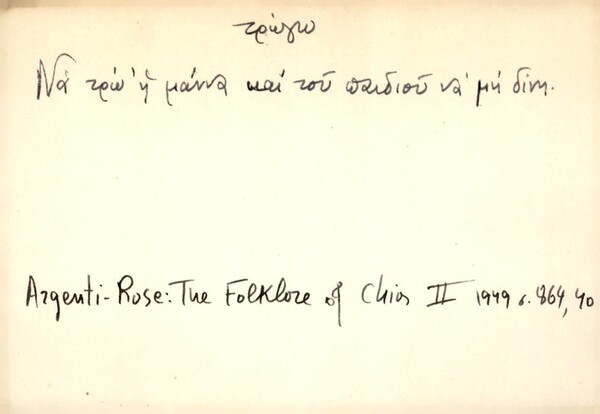 τρώγω
Νά τρώ' ἡ μάννα καί τοῦ παιδιοῦ νά μή δίνη.
Argenti-Rose: The Folklore of Chios II 1949 σ. 864, 40